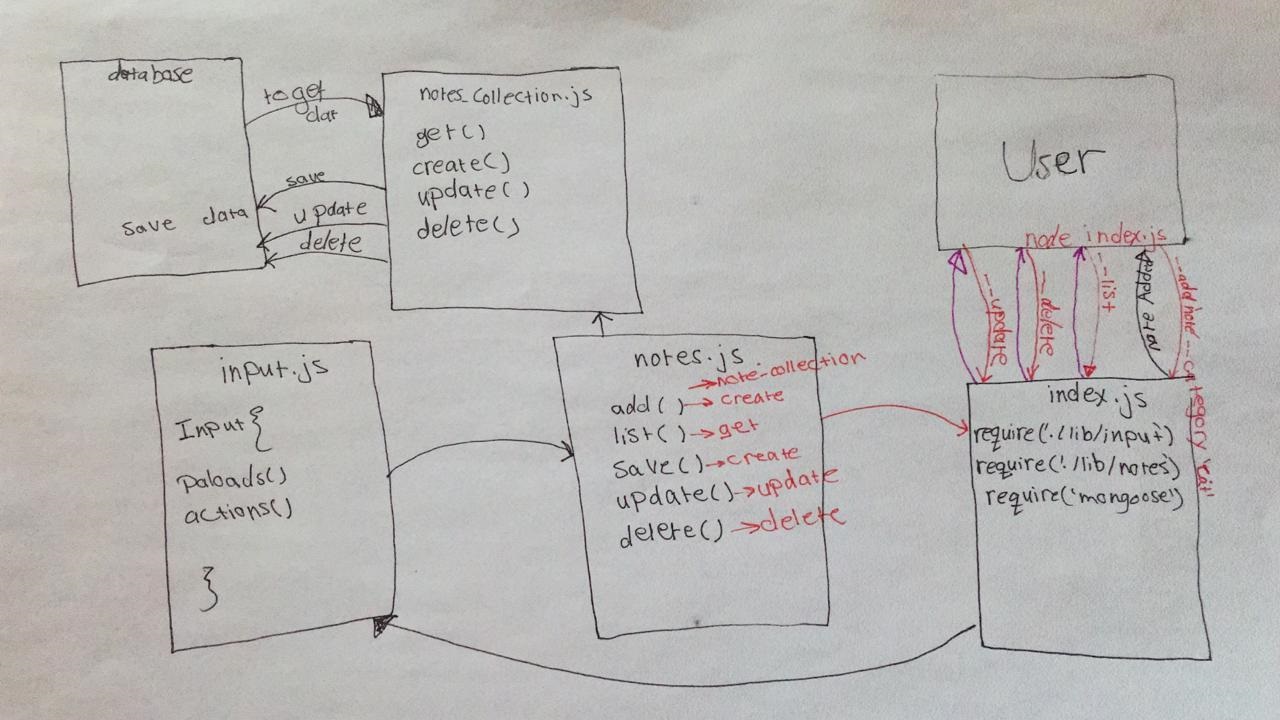 database
to get
dat
save
update
delete
save data
notes_collection.js
get()
create()
update()
delete()
User
node index.js
--update
--delete
--list
Add Note
--add note --category 'eat'
input.js
Input {
Paloads()
actions()
}
notes.js
→note-collection
add() → create
list() → get
save() → create
update() → update
delete() → delete
index.js
require('./lib/input')
require('./lib/notes')
require('mongoose')